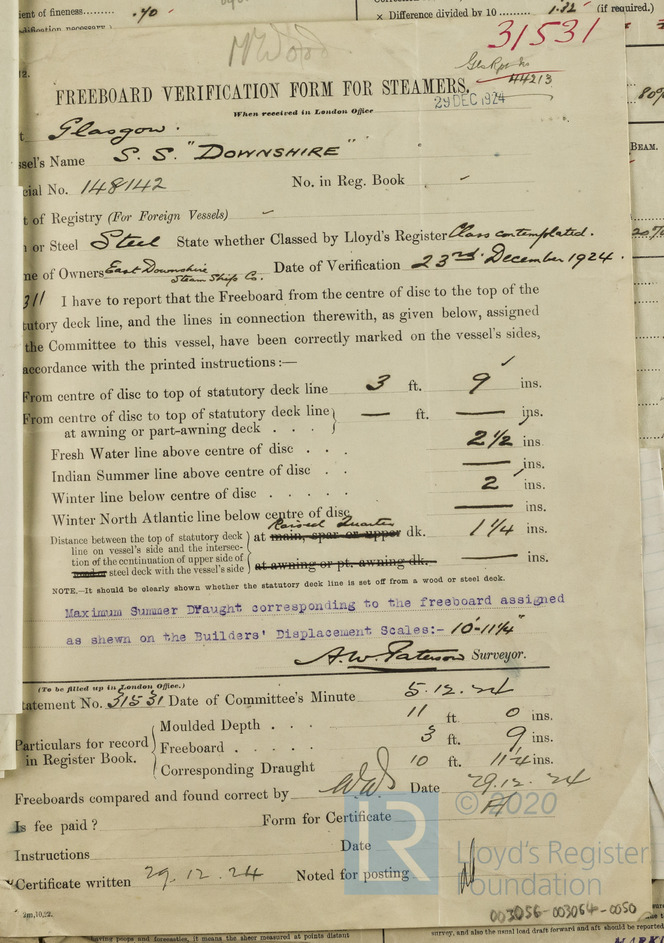 ient of fineness......... .70
× Difference divided by 10 ......... 1.32 (if required.)
dification necessary
31531
Gls Rpt No
44213
FREEBOARD VERIFICATION FORM FOR STEAMERS.
29 DEC 1924
When received in London Office
Glasgow.
ssel's Name S.S. "DOWNSHIRE"
cial No. 148142 No. in Reg. Book
t of Registry (For Foreign Vessels)
or Steel Steel State whether Classed by Lloyd's Register Class contemplated.
me of Owners East Downshire Steam Ship Co. Date of Verification 23rd December 1924.
311 I have to report that the Freeboard from the centre of disc to the top of the
tutory deck line, and the lines in connection therewith, as given below, assigned
the Committee to this vessel, have been correctly marked on the vessel's sides,
accordance with the printed instructions :—
From centre of disc to top of statutory deck line 3 ft. 9 ins.
From centre of disc to top of statutory deck line — ft. — ins.
at awning or part-awning deck . . .
Fresh Water line above centre of disc . . . 2½ ins
Indian Summer line above centre of disc . . — ins.
Winter line below centre of disc . . . . . 2 ins
Winter North Atlantic line below centre of disc — ins.
Raised Quarter
Distance between the top of statutory deck
line on vessel's side and the intersec-
tion of the continuation of upper side of
steel deck with the vessel's side
at main, spar or upper dk. 1¼ ins.
at awning or pt. awning dk. — ins.
NOTE.—It should be clearly shown whether the statutory deck line is set off from a wood or steel deck.
Maximum Summer Draught corresponding to the freeboard assigned
as shewn on the Builders' Displacement Scales:- 10'-11¼"
A. W. Paterson Surveyor.
(To be filled up in London Office.)
tatement No. 31531 Date of Committee's Minute 5.12.24
Particulars for record
in Register Book.
Moulded Depth . . . 11 ft. 0 ins.
Freeboard . . . . . 3 ft. 9 ins.
Corresponding Draught 10 ft. 11¼ ins.
Freeboards compared and found correct by Date 29.12.24
Is fee paid ? Form for Certificate
Instructions Date
Certificate written 29.12.24 Noted for posting
2m,10,22.
© 2020
LR
Lloyd's Register
Foundation
003056-003064-0050
BEAM.
having poops and forecastles, it means the sheer measured at points distant
survey, and also the usual load draft forward and aft should be reported